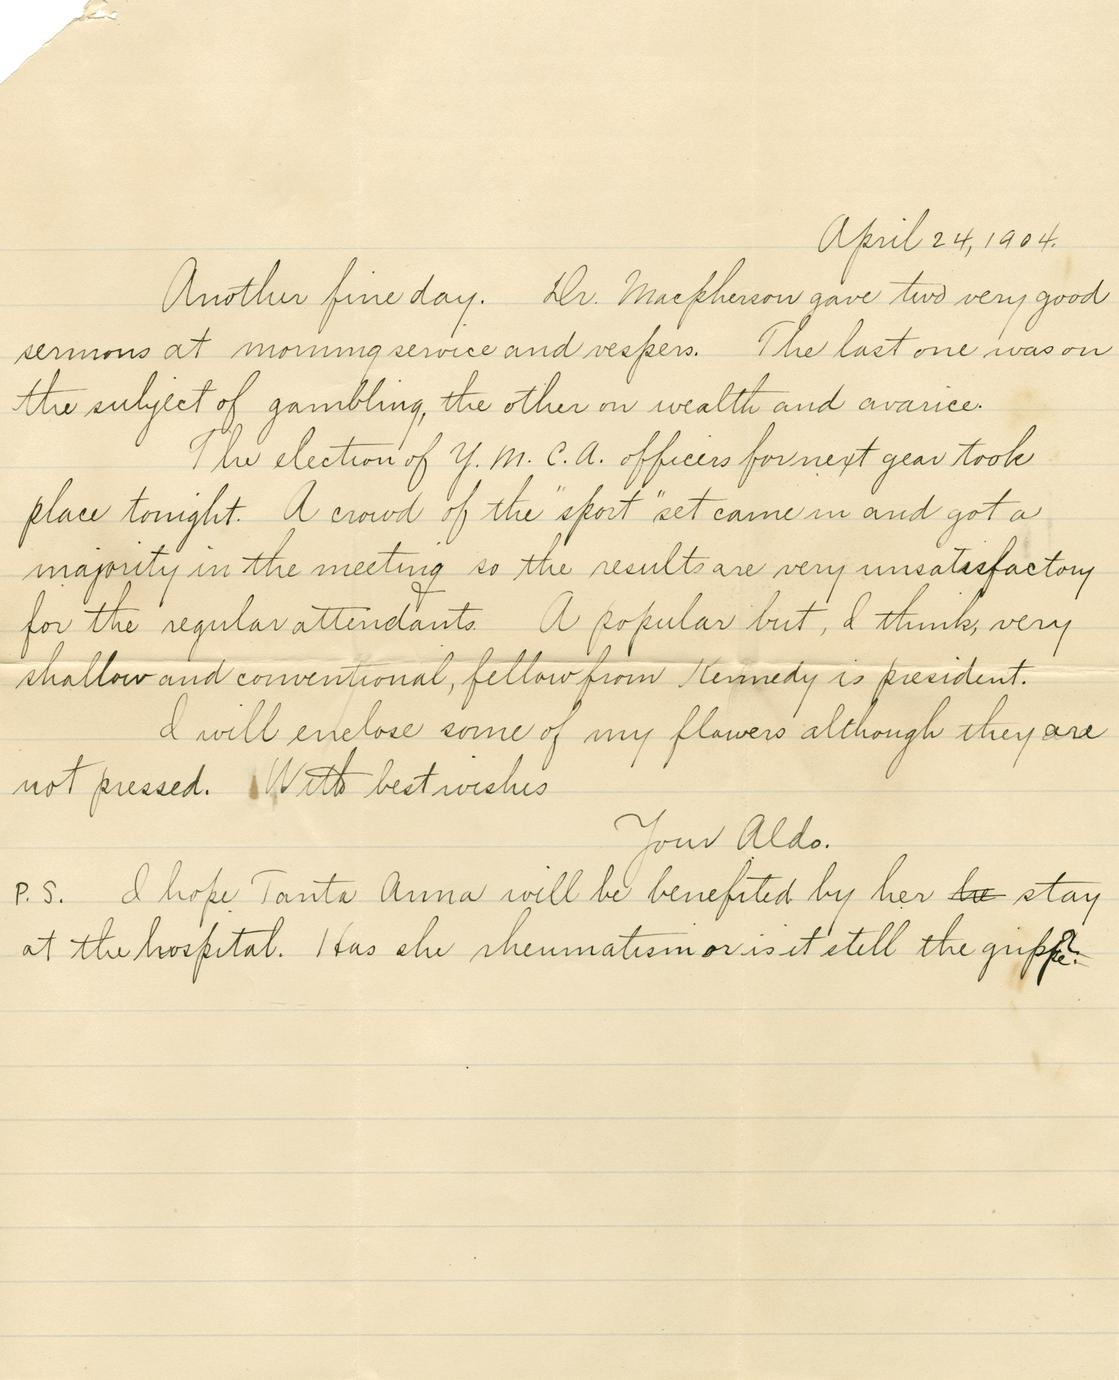 April 24, 1904.
Another fine day. Dr. Macpherson gave two very good
sermons at morning service and vespers. The last one was on
the subject of gambling, the other on wealth and avarice.
The election of Y. M. C. A. officers for next year took
place tonight. A crowd of the "sport" set came in and got a
majority in the meeting so the results are very unsatisfactory
for the regular attendants. A popular but, I think, very
shallow and conventional, fellow from Kennedy is president.
I will enclose some of my flowers although they are
not pressed. With best wishes
Your Aldo.
P. S. I hope Tanta Anna will be benefited by her stay
at the hospital. Has she rheumatism or is it still the grippe?